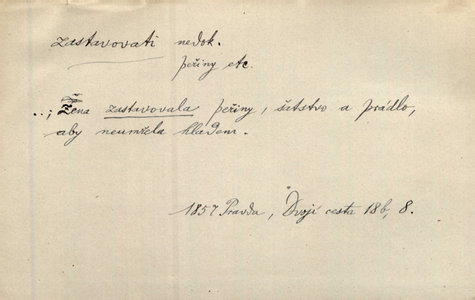 zastavovati nedok.
peřiny etc.
..; Žena zastavovala peřiny, šatstvo a prádlo,
aby neumřela hladem.
1857 Pravda, Dvojí cesta 18b, 8.